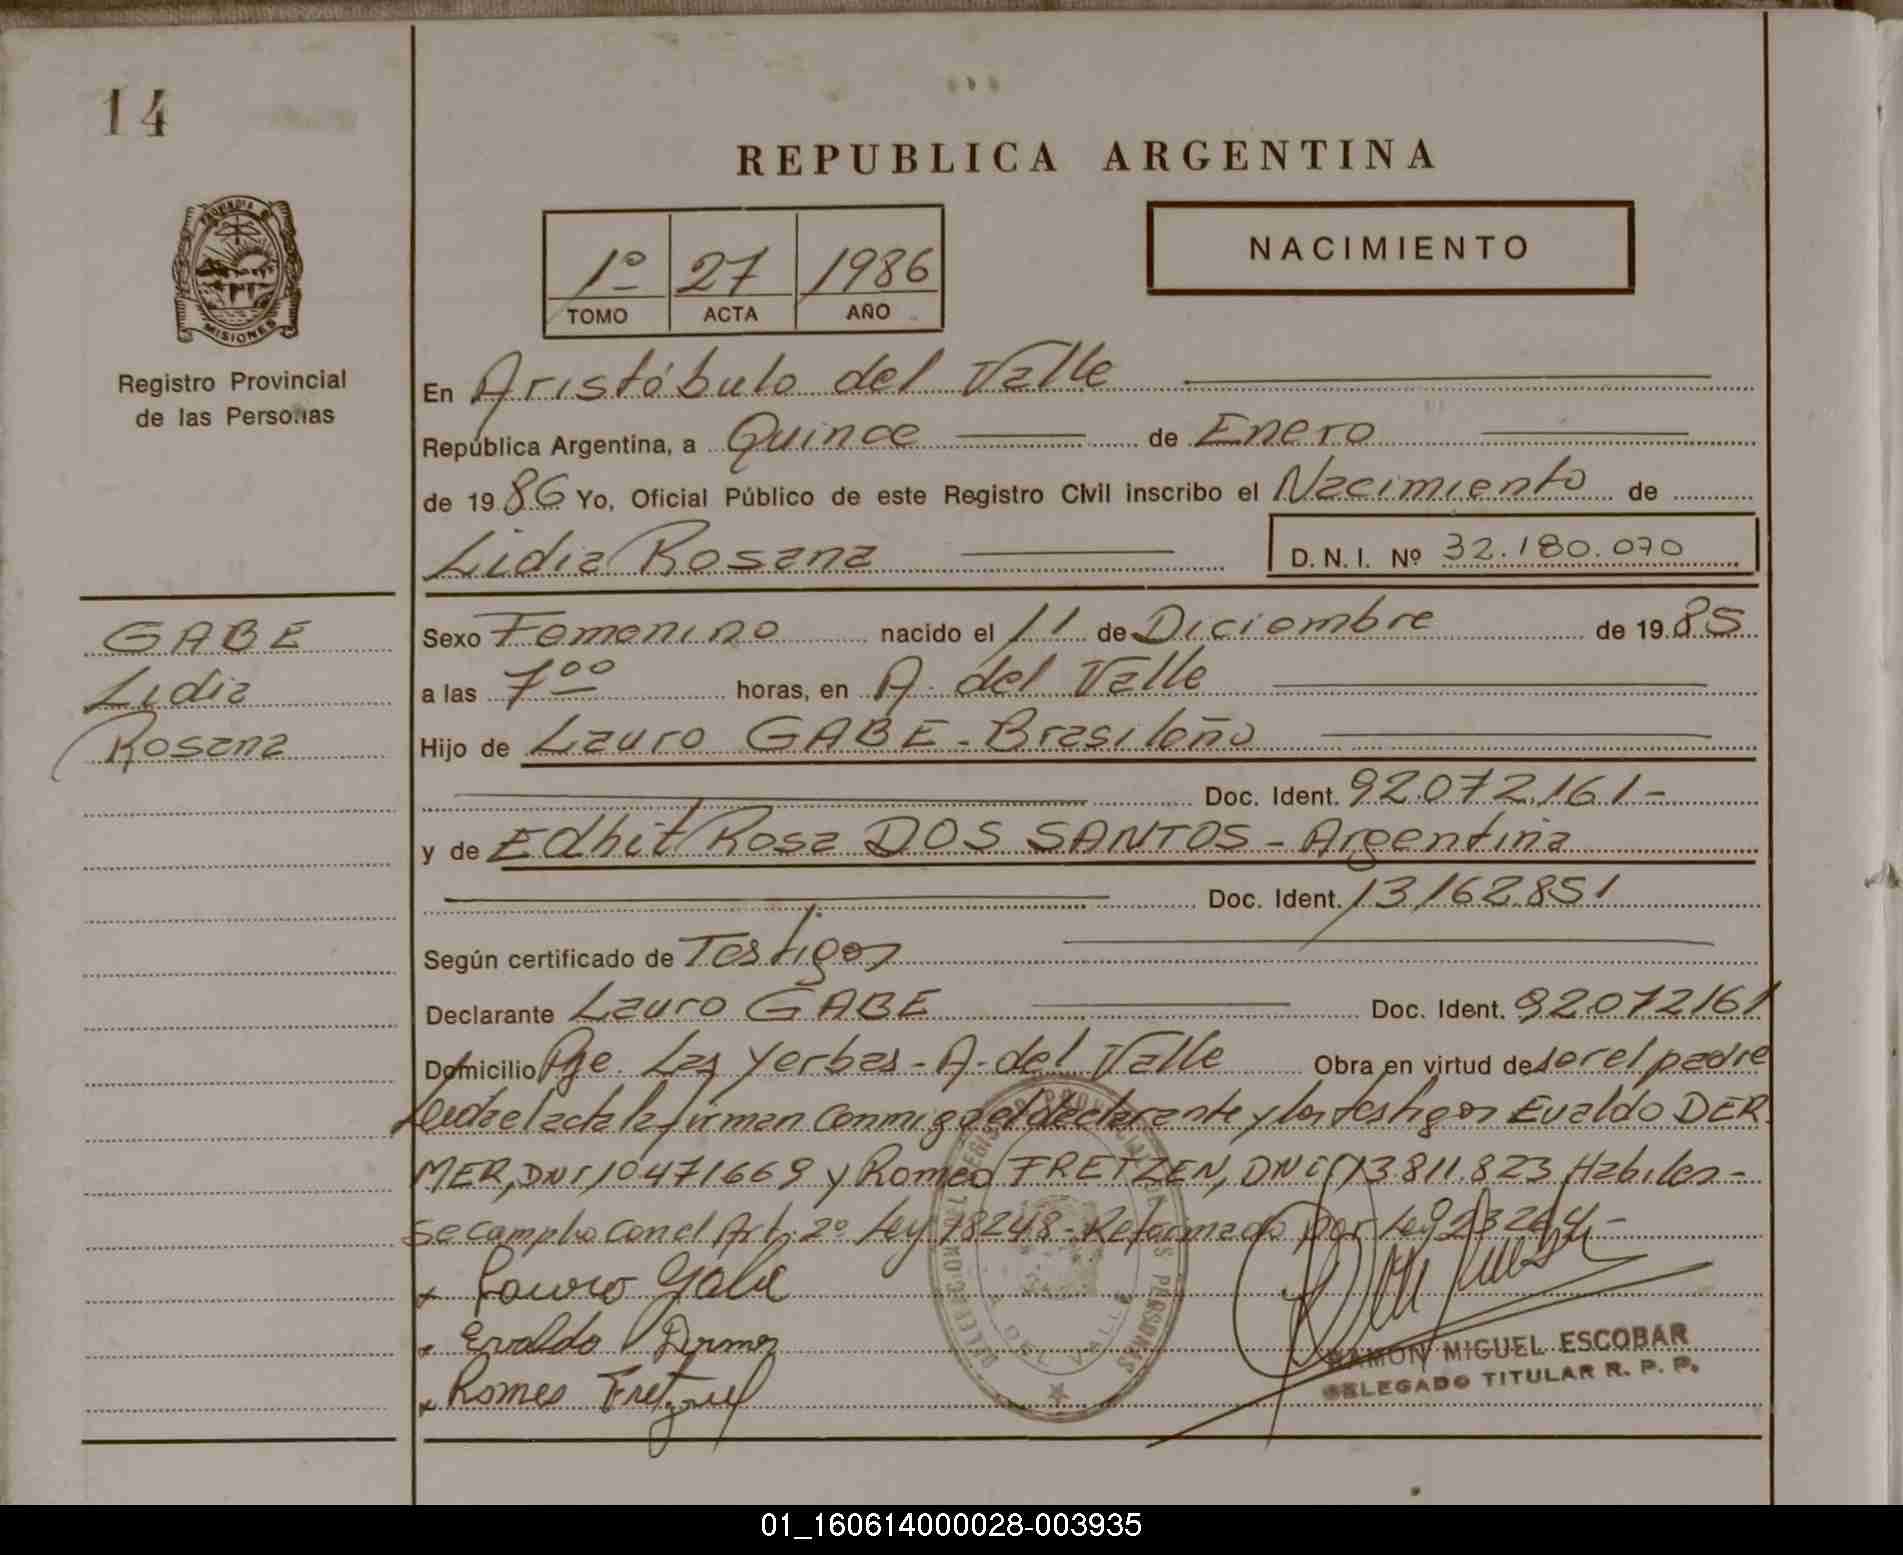 14
REPUBLICA ARGENTINA
PROVINCIA DE
MISIONES
Registro Provincial
de las Personas
1º 27 1986
TOMO ACTA AÑO
NACIMIENTO
En Aristóbulo del Valle
República Argentina, a Quince de Enero
de 1986 Yo, Oficial Público de este Registro Civil inscribo el Nacimiento de
Lidia Rosana
D. N. I. Nº 32.180.070
GABE
Lidia
Rosana
Sexo Femenino nacido el 11 de Diciembre de 1985
a las 7ºº horas, en A. del Valle
Hijo de Lauro GABE - Brasileño
Doc. Ident. 92.072.161-
y de Edhit Rosa DOS SANTOS - Argentina
Doc. Ident. 13.162.851
Según certificado de Testigos
Declarante Lauro GABE Doc. Ident. 92.072161
Domicilio Pje. Las Yerbas - A. del Valle Obra en virtud de ser el padre
Leída el acta la firman conmigo el declarante y los testigos Evaldo DER
MER, DNI 10471669 y Romeo FRETZEN, DNI 13.811.823 Habiles-
Se cumplio con el Art. 2º Ley 18248- Reformado por Ley 23264-
x Lauro Gabe
x Evaldo Dermer
x Romeo
RAMON MIGUEL ESCOBAR
DELEGADO TITULAR R. P. P.
01_160614000028-003935